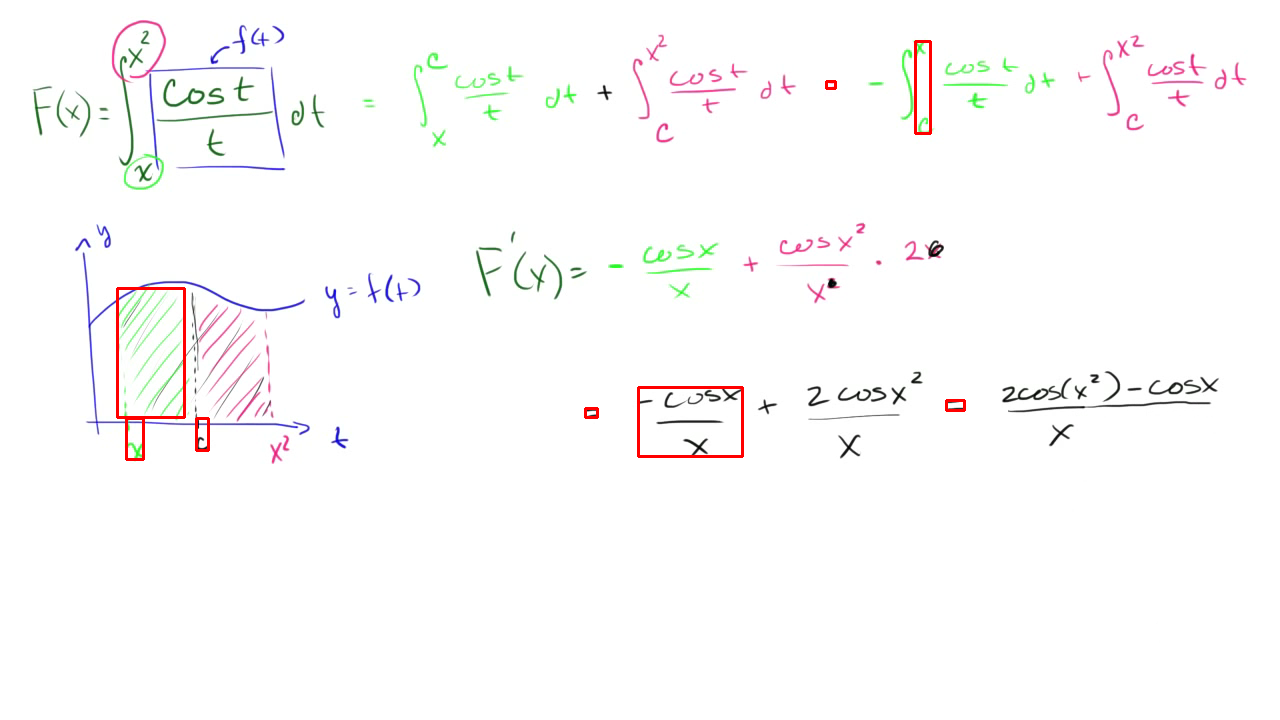 F(x) = ∫_x^{x²} cos t / t dt = ∫_x^c cos t / t dt + ∫_c^{x²} cos t / t dt = - ∫_c^x cos t / t dt + ∫_c^{x²} cos t / t dt
f(t)
y
y = f(t)
x c x² t
F'(x) = - cos x / x + cos x² / x² · 2x
= - cos x / x + 2 cos x² / x = 2cos(x²) - cos x / x